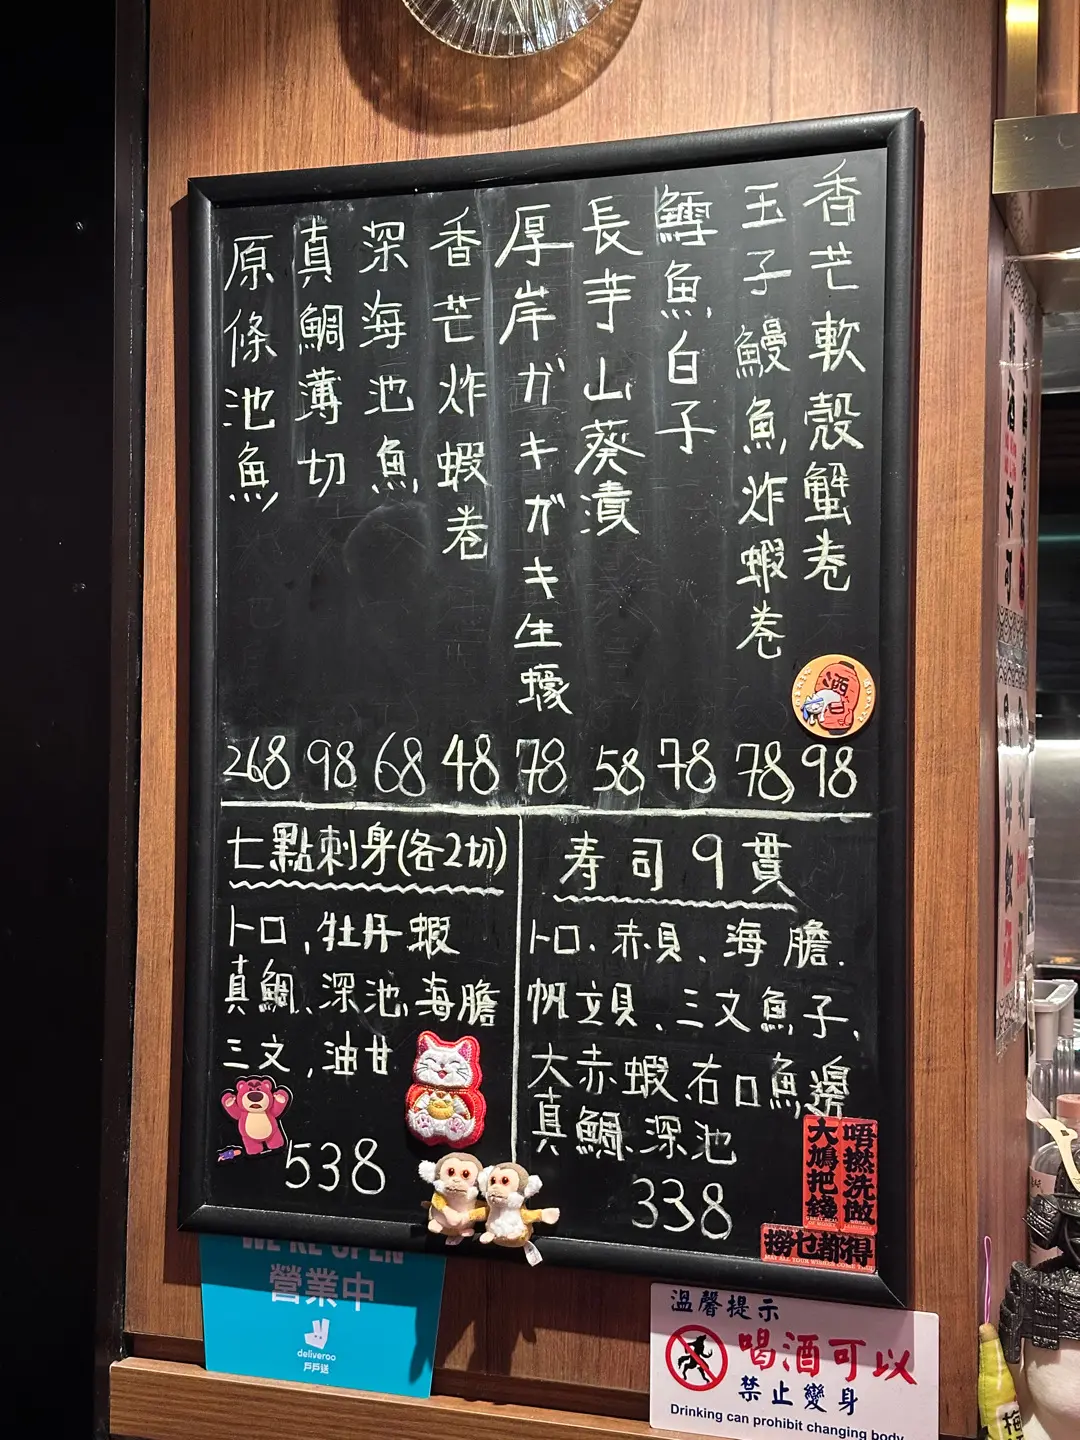 香芒軟殼蟹卷 98
玉子鰻魚炸蝦卷 78
鱈魚白子 78
長芋山葵漬 58
厚岸ガキガキ生蠔 78
香芒炸蝦卷 48
深海池魚 68
真鯛薄切 98
原條池魚 268
七點刺身(各2切)
トロ、牡丹蝦
真鯛、深池、海膽
三文、油甘
538
寿司9貫
トロ、赤貝、海膽、
帆立貝、三文魚子、
大赤蝦、右口魚邊
真鯛、深池
338
酒
唔撚洗做
大鳩把錢
撈乜都得
WE'RE OPEN
營業中
deliveroo
戶戶送
溫馨提示
喝酒可以
禁止變身
Drinking can prohibit changing body